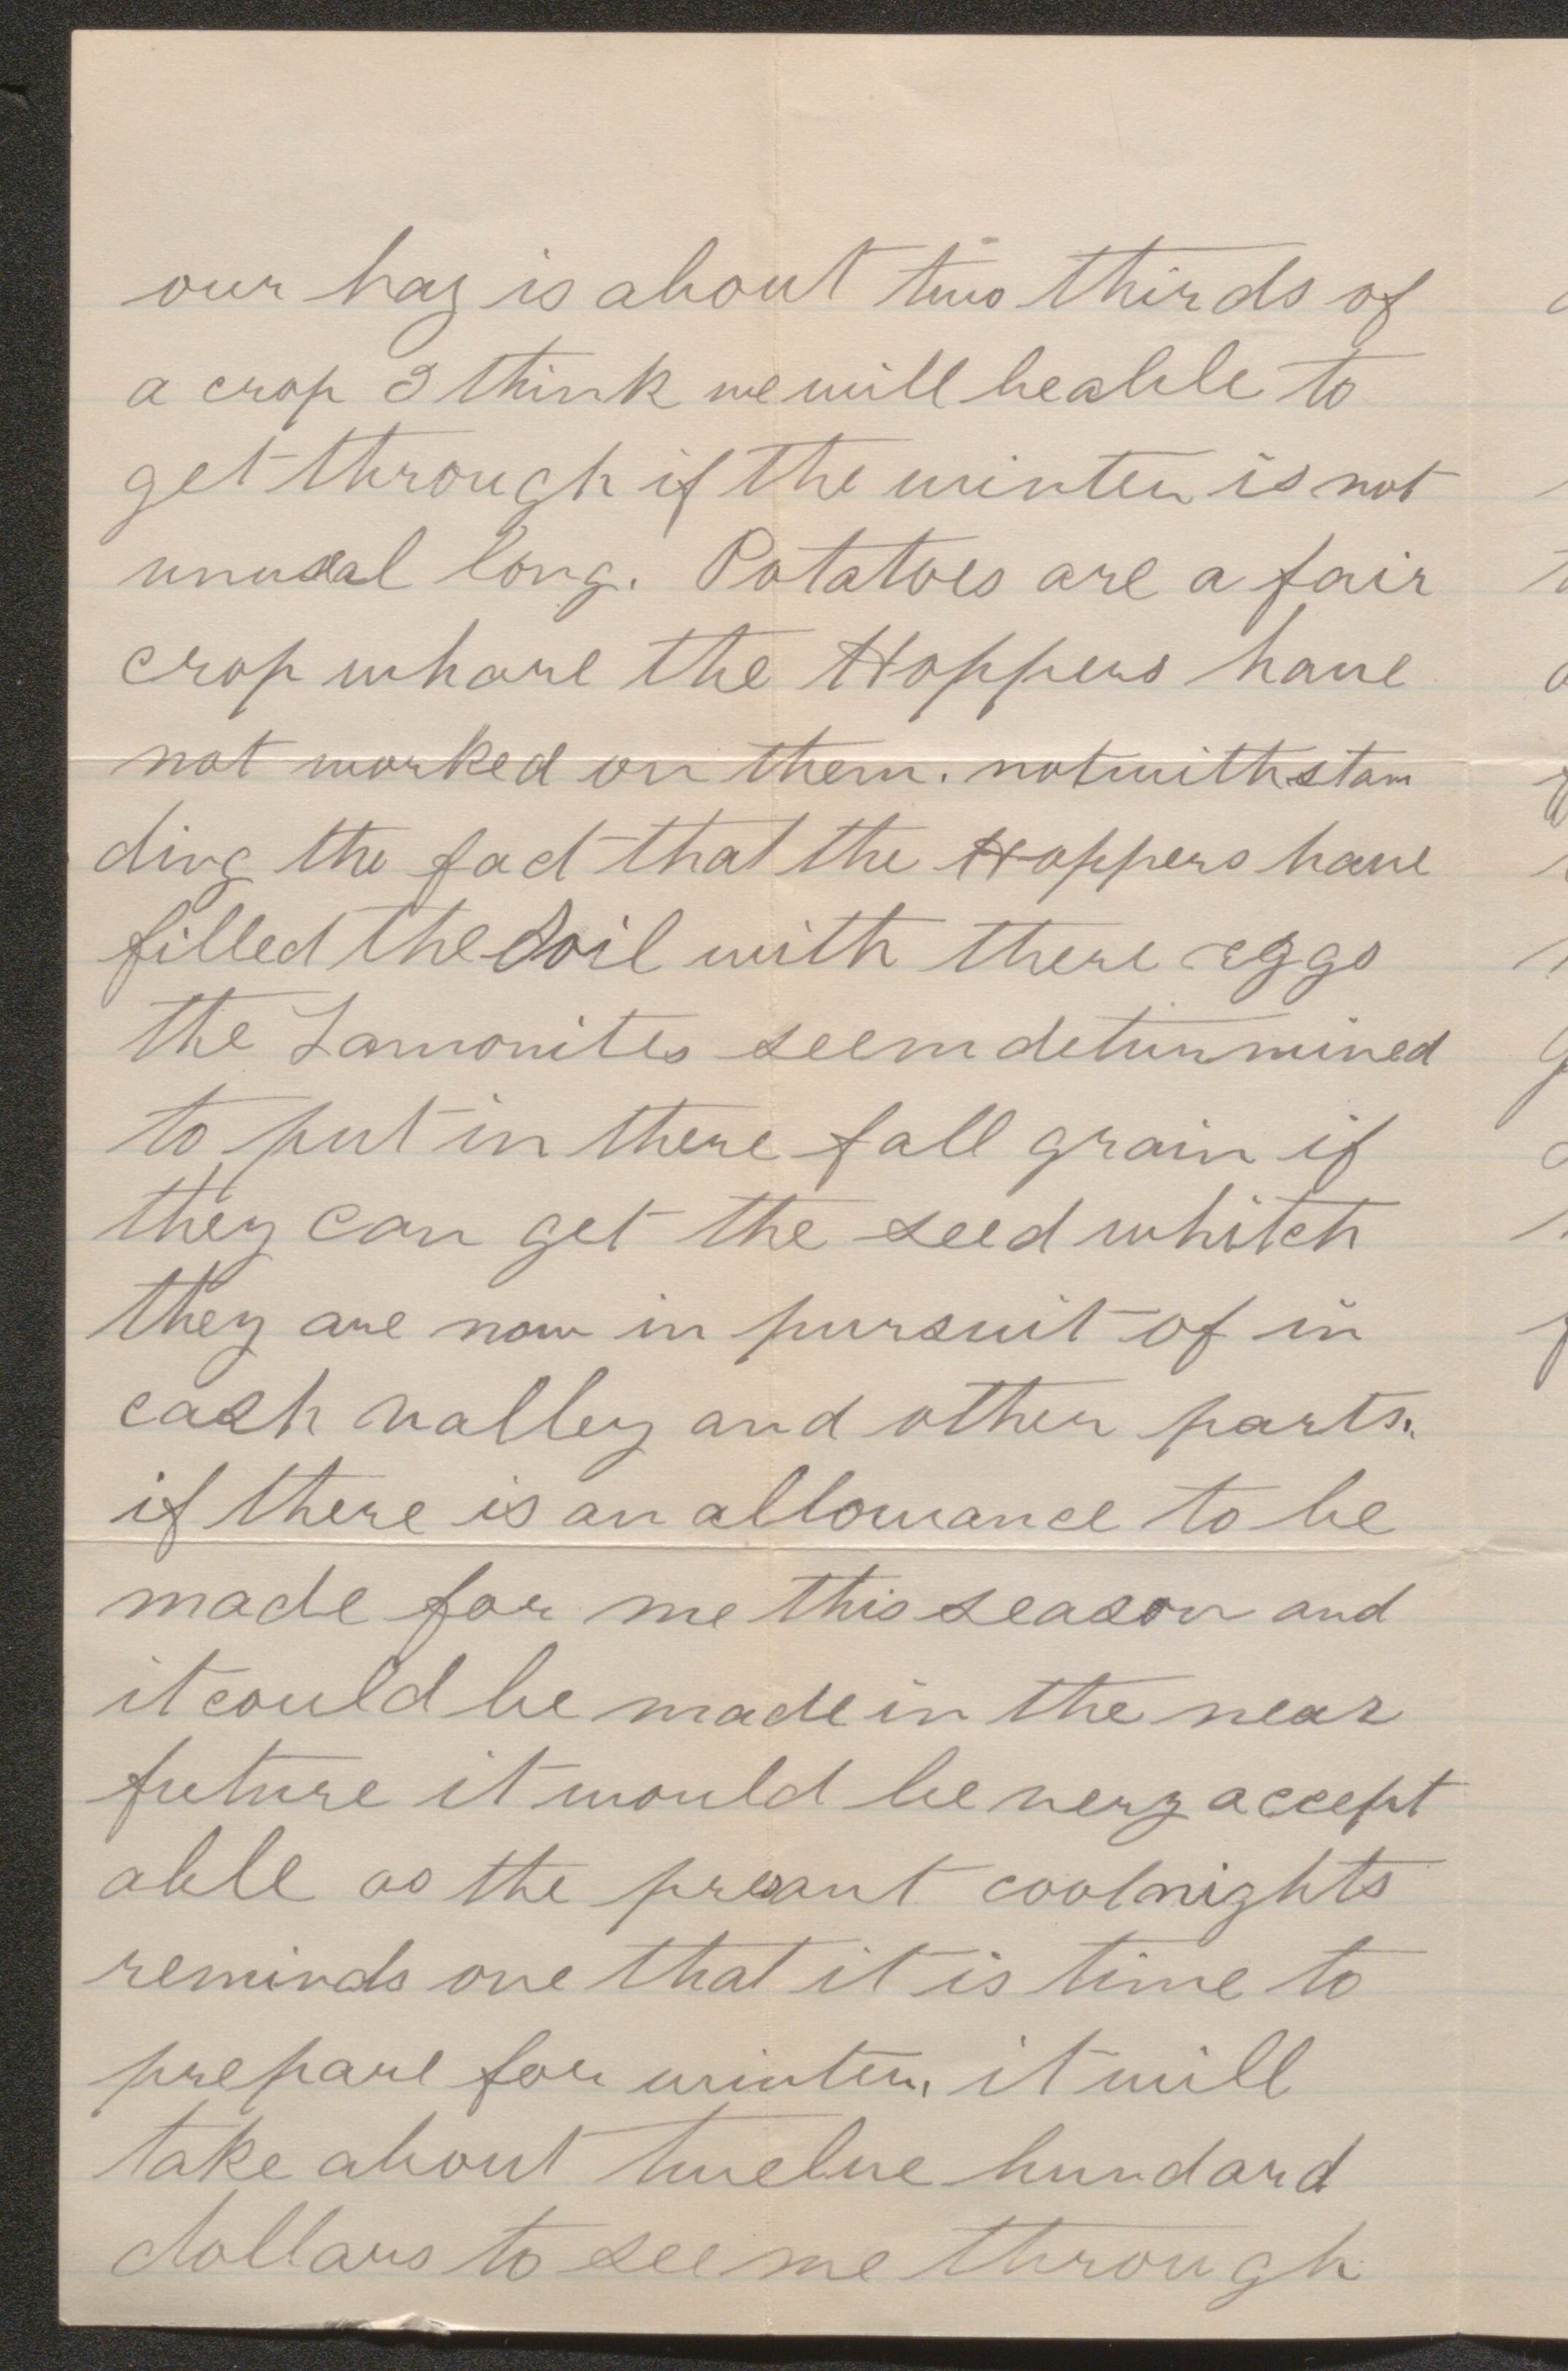 our hay is about two thirds of
a crop I think we will be able to
get through if the winter is not
unusal long. Potatoes are a fair
crop whare the Hoppers have
not worked on them. notwithstan
ding the fact that the Hoppers have
filled the Soil with there eggs
the Lamonites seem deturmined
to put in there fall grain if
they can get the seed whitch
they are now in pursuit of in
cash valley and other parts.
if there is an allowance to be
made for me this season and
it could be made in the near
future it would be very accept
able as the presant cool nights
reminds one that it is time to
prepare for winter. it will
take about twelve hundard
dollars to see me through